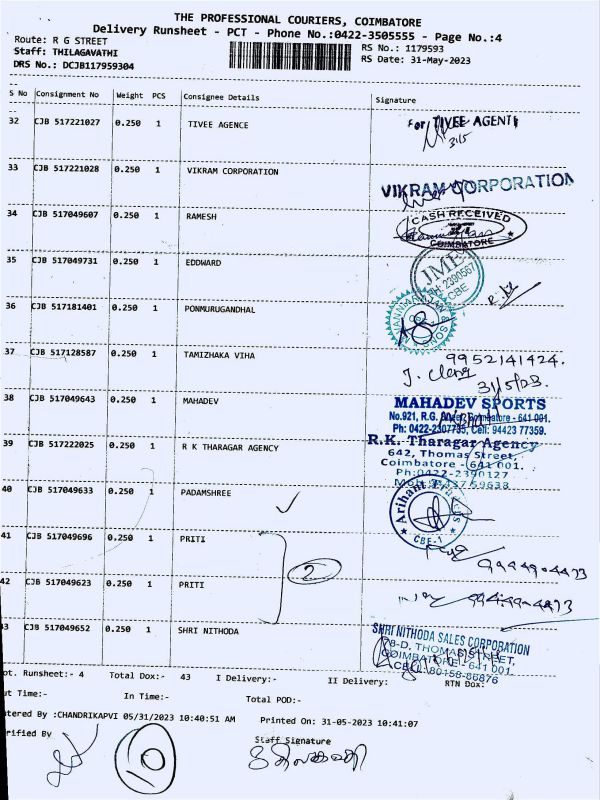 THE PROFESSIONAL COURIERS, COIMBATORE
Delivery Runsheet - PCT - Phone No.:0422-3505555 - Page No.:4
Route: R G STREET
Staff: THILAGAVATHI
DRS No.: DCJB117959304
RS No.: 1179593
RS Date: 31-May-2023
S No Consignment No Weight PCS Consignee Details Signature
32 CJB 517221027 0.250 1 TIVEE AGENCE
For TIVEE AGENT
31/5
33 CJB 517221028 0.250 1 VIKRAM CORPORATION
VIKRAM CORPORATION
34 CJB 517049607 0.250 1 RAMESH
CASH RECEIVED
COIMBATORE
35 CJB 517049731 0.250 1 EDDWARD
JME
2390567
CBE
36 CJB 517181401 0.250 1 PONMURUGANDHAL
37 CJB 517128587 0.250 1 TAMIZHAKA VIHA
9952141424.
31/5/23.
38 CJB 517049643 0.250 1 MAHADEV
MAHADEV SPORTS
No.921, R.G. Street, Coimbatore - 641 001.
Ph: 0422-2307735, Cell: 94423 77359.
39 CJB 517222025 0.250 1 R K THARAGAR AGENCY
R.K. Tharagar Agency
642, Thomas Street,
Coimbatore - 641 001.
Ph:0422-2390127
40 CJB 517049633 0.250 1 PADAMSHREE
Arihant
CBE-1
41 CJB 517049696 0.250 1 PRITI
2
42 CJB 517049623 0.250 1 PRITI
43 CJB 517049652 0.250 1 SHRI NITHODA
SHRI NITHODA SALES CORPORATION
78-D, THOMAS STREET,
COIMBATORE - 641 001
CELL: 80158-86876
ot. Runsheet:- 4 Total Dox:- 43 I Delivery:- II Delivery:- RTN Dox:
ut Time:- In Time:- Total POD:-
ntered By :CHANDRIKAPVI 05/31/2023 10:40:51 AM Printed On: 31-05-2023 10:41:07
erified By Staff Signature
10